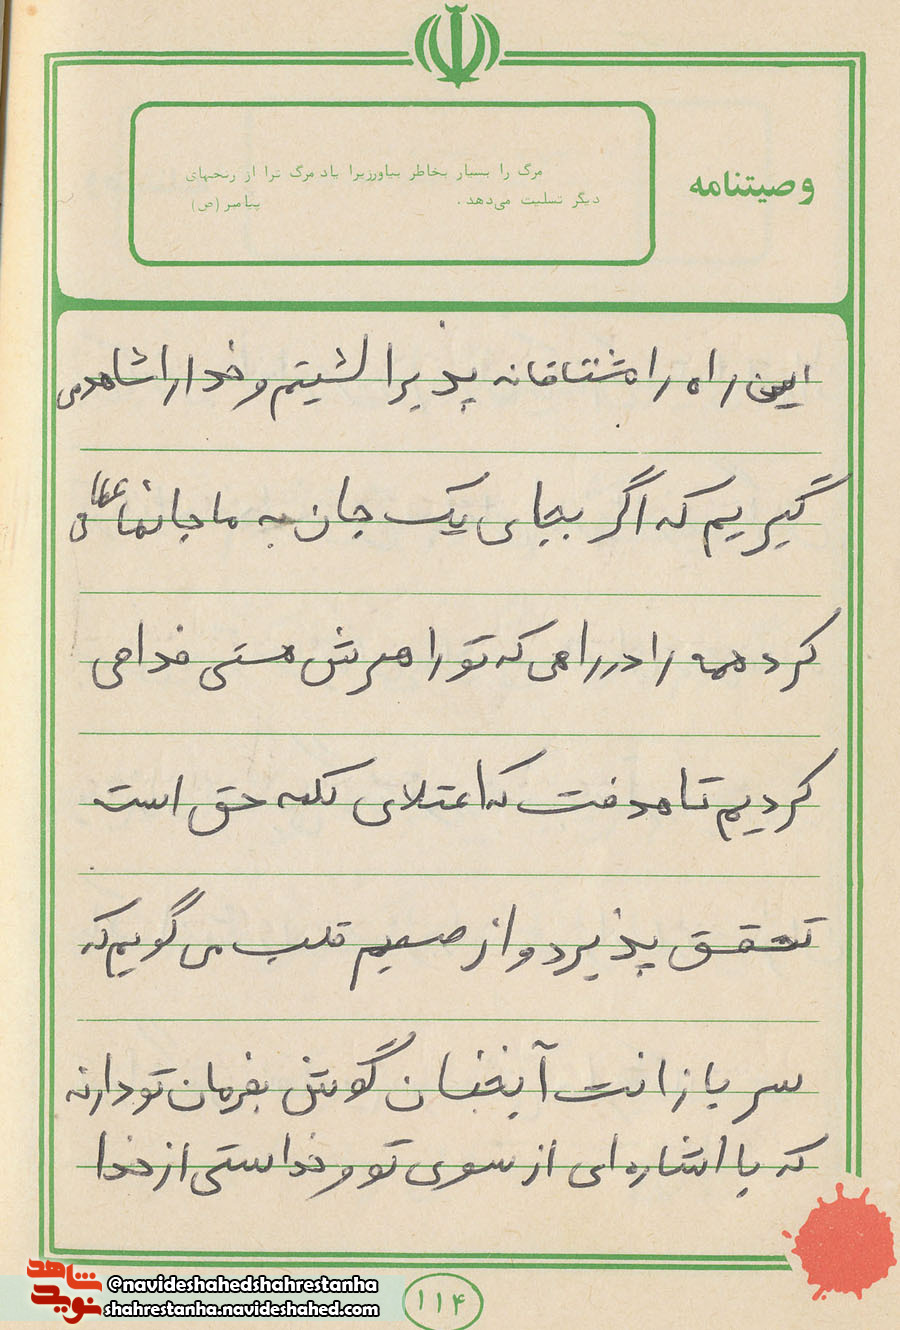 وصیتنامه
مرگ را بسیار بخاطر بیاورزیرا یاد مرگ ترا از رنجهای
دیگر تسلیت می‌دهد. پیامبر (ص)
این راه را مشتاقانه پذیرا گشتیم و خدا را شاهد می
گیریم که اگر بجای یک جان به ما جانها عطا
کرد همه را در راهی که تو راهبرش هستی فدا می
کردیم تا هدفت که اعتلای کلمه حق است
تحقق پذیرد و از صمیم قلب می گویم که
سربازانت آنچنان گوش بفرمان تو دارند
که با اشاره‌ای از سوی تو و خواستی از خدا
۱۱۴
شاهد
نوید
@navideshahedshahrestanha
shahrestanha.navideshahed.com